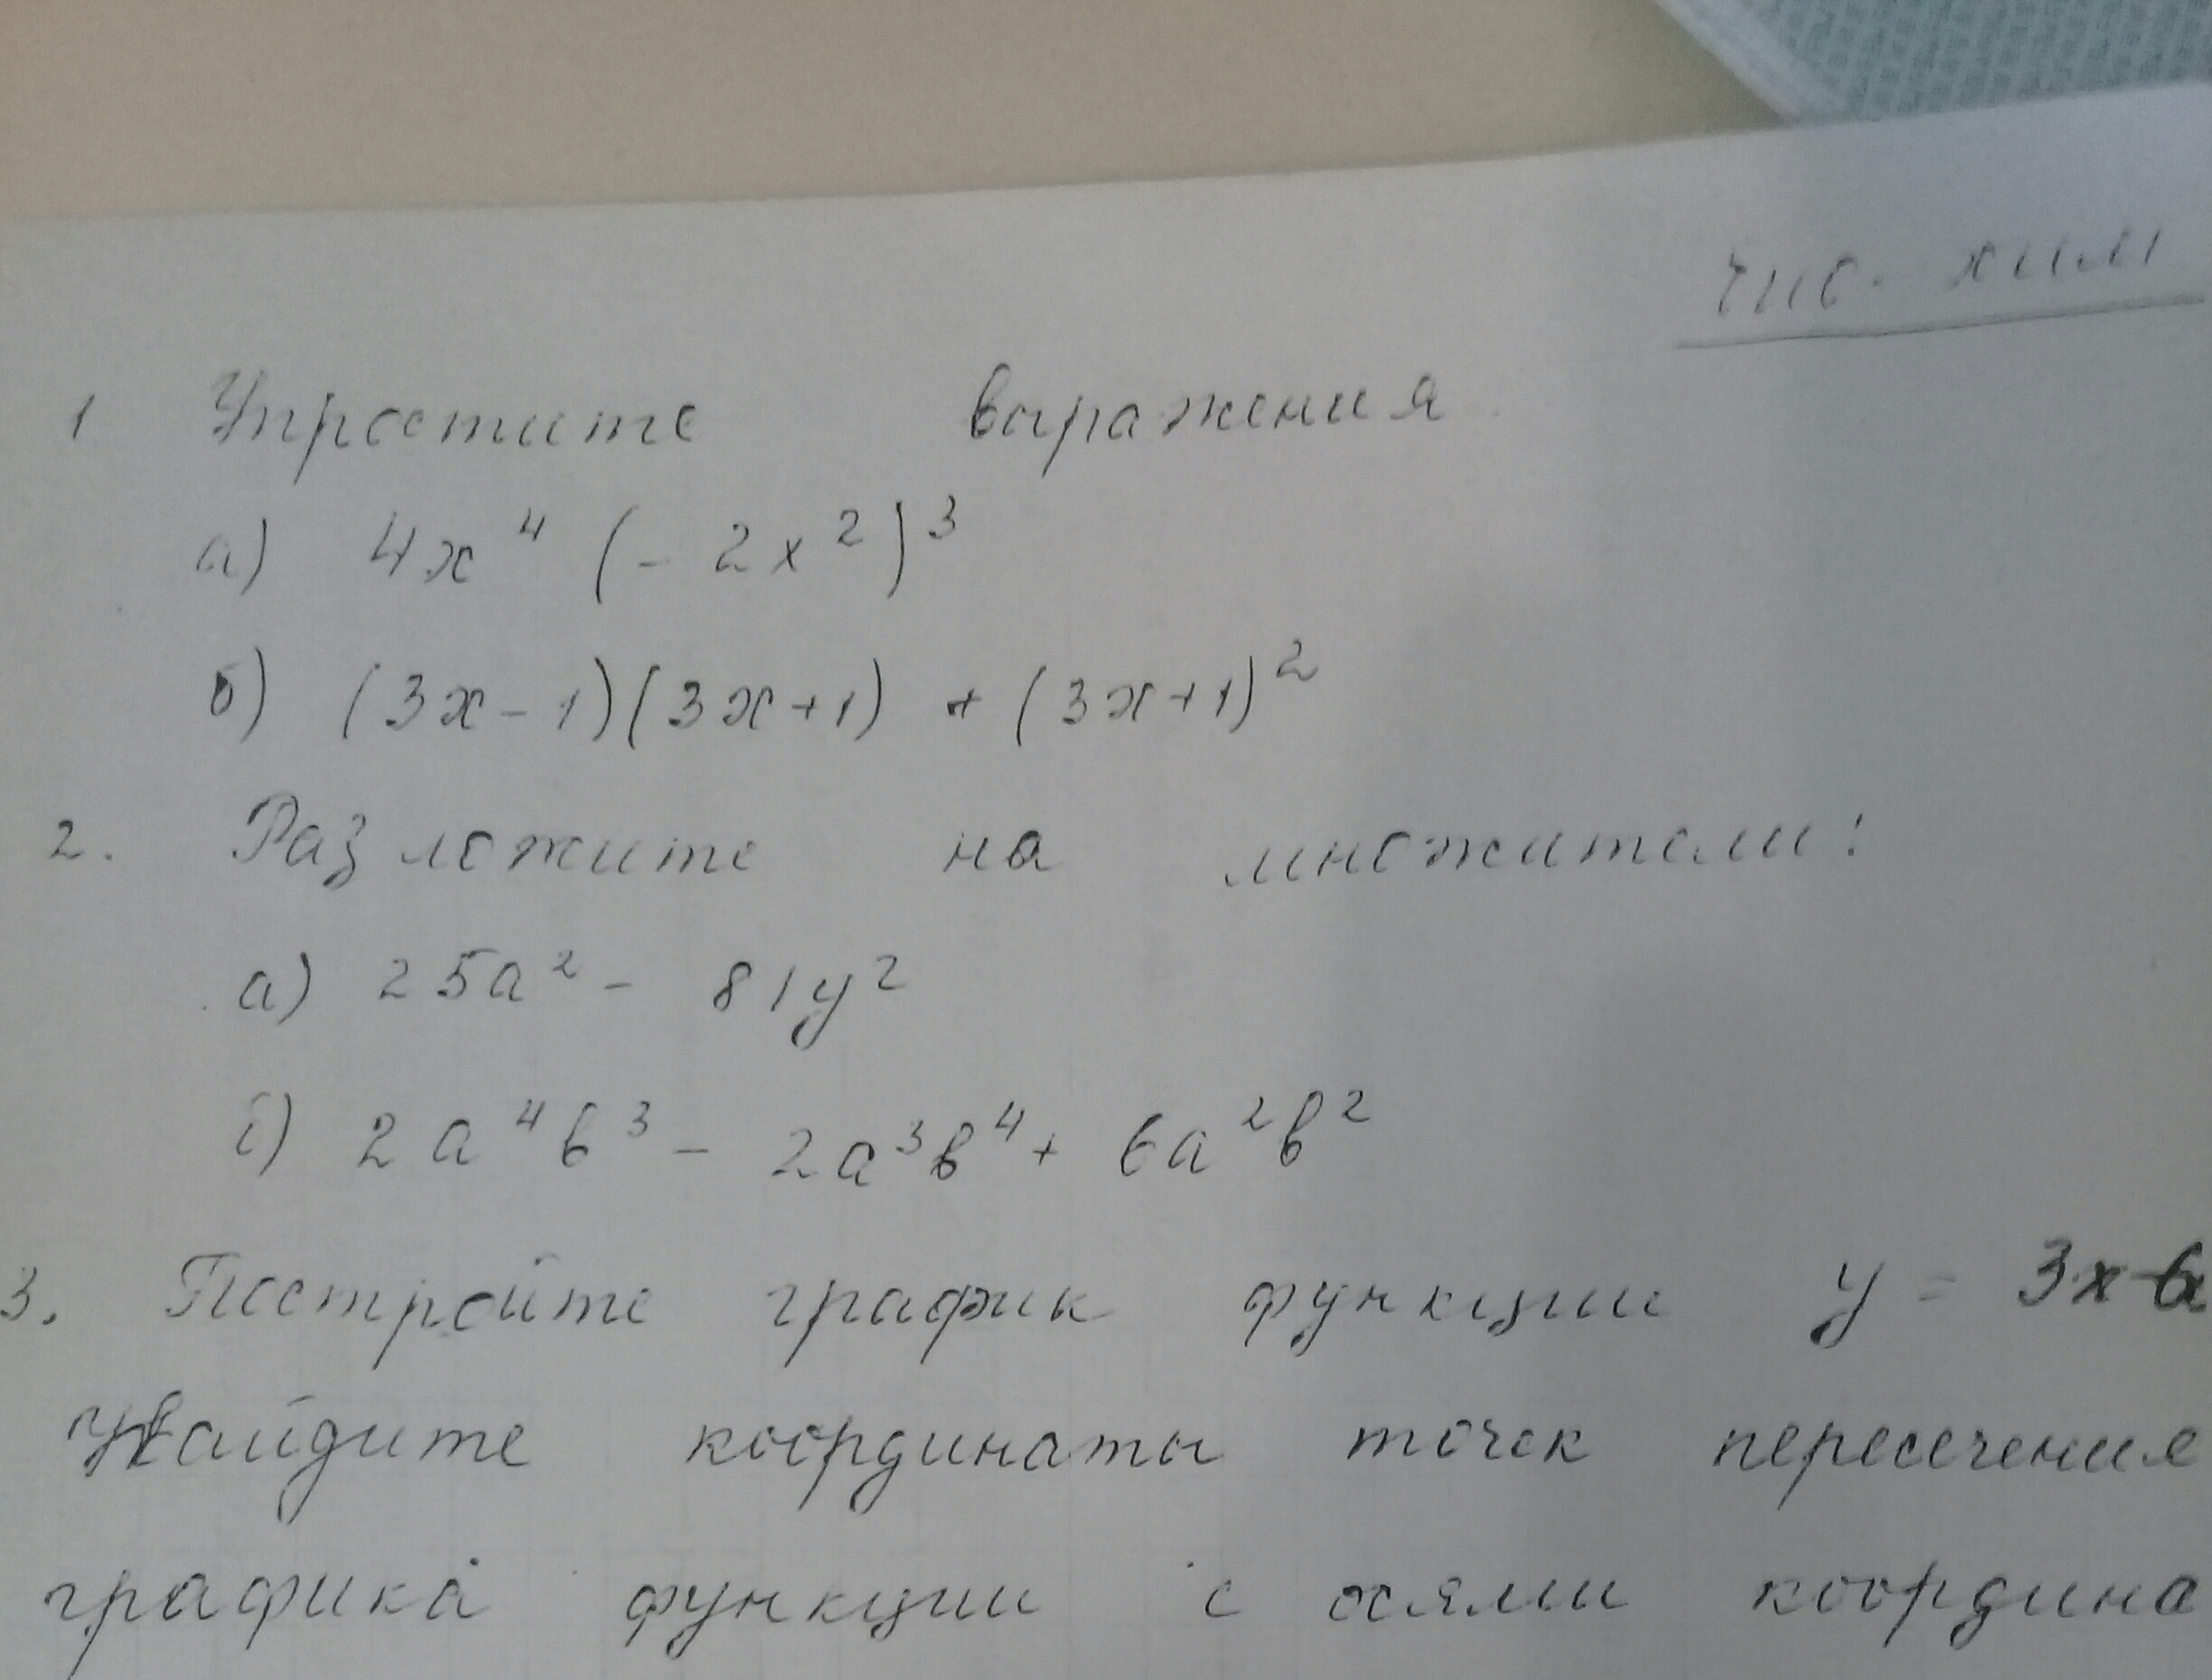 1 Упростите выражения.
а) 4x⁴ (- 2x²)³
б) (3x-1)(3x+1) + (3x+1)²
2. Разложите на множители:
а) 25а² - 81y²
б) 2а⁴b³ - 2а³b⁴ + 6а²b²
3. Постройте график функции y = 3x-6
Найдите координаты точек пересечения
графика функции с осями координа